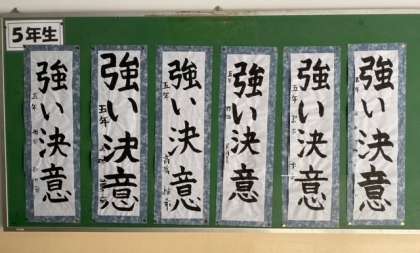 5年生
強い決意
五年
強い決意
五年
強い決意
五年
強い決意
五年
強い決意
五年
強い決意